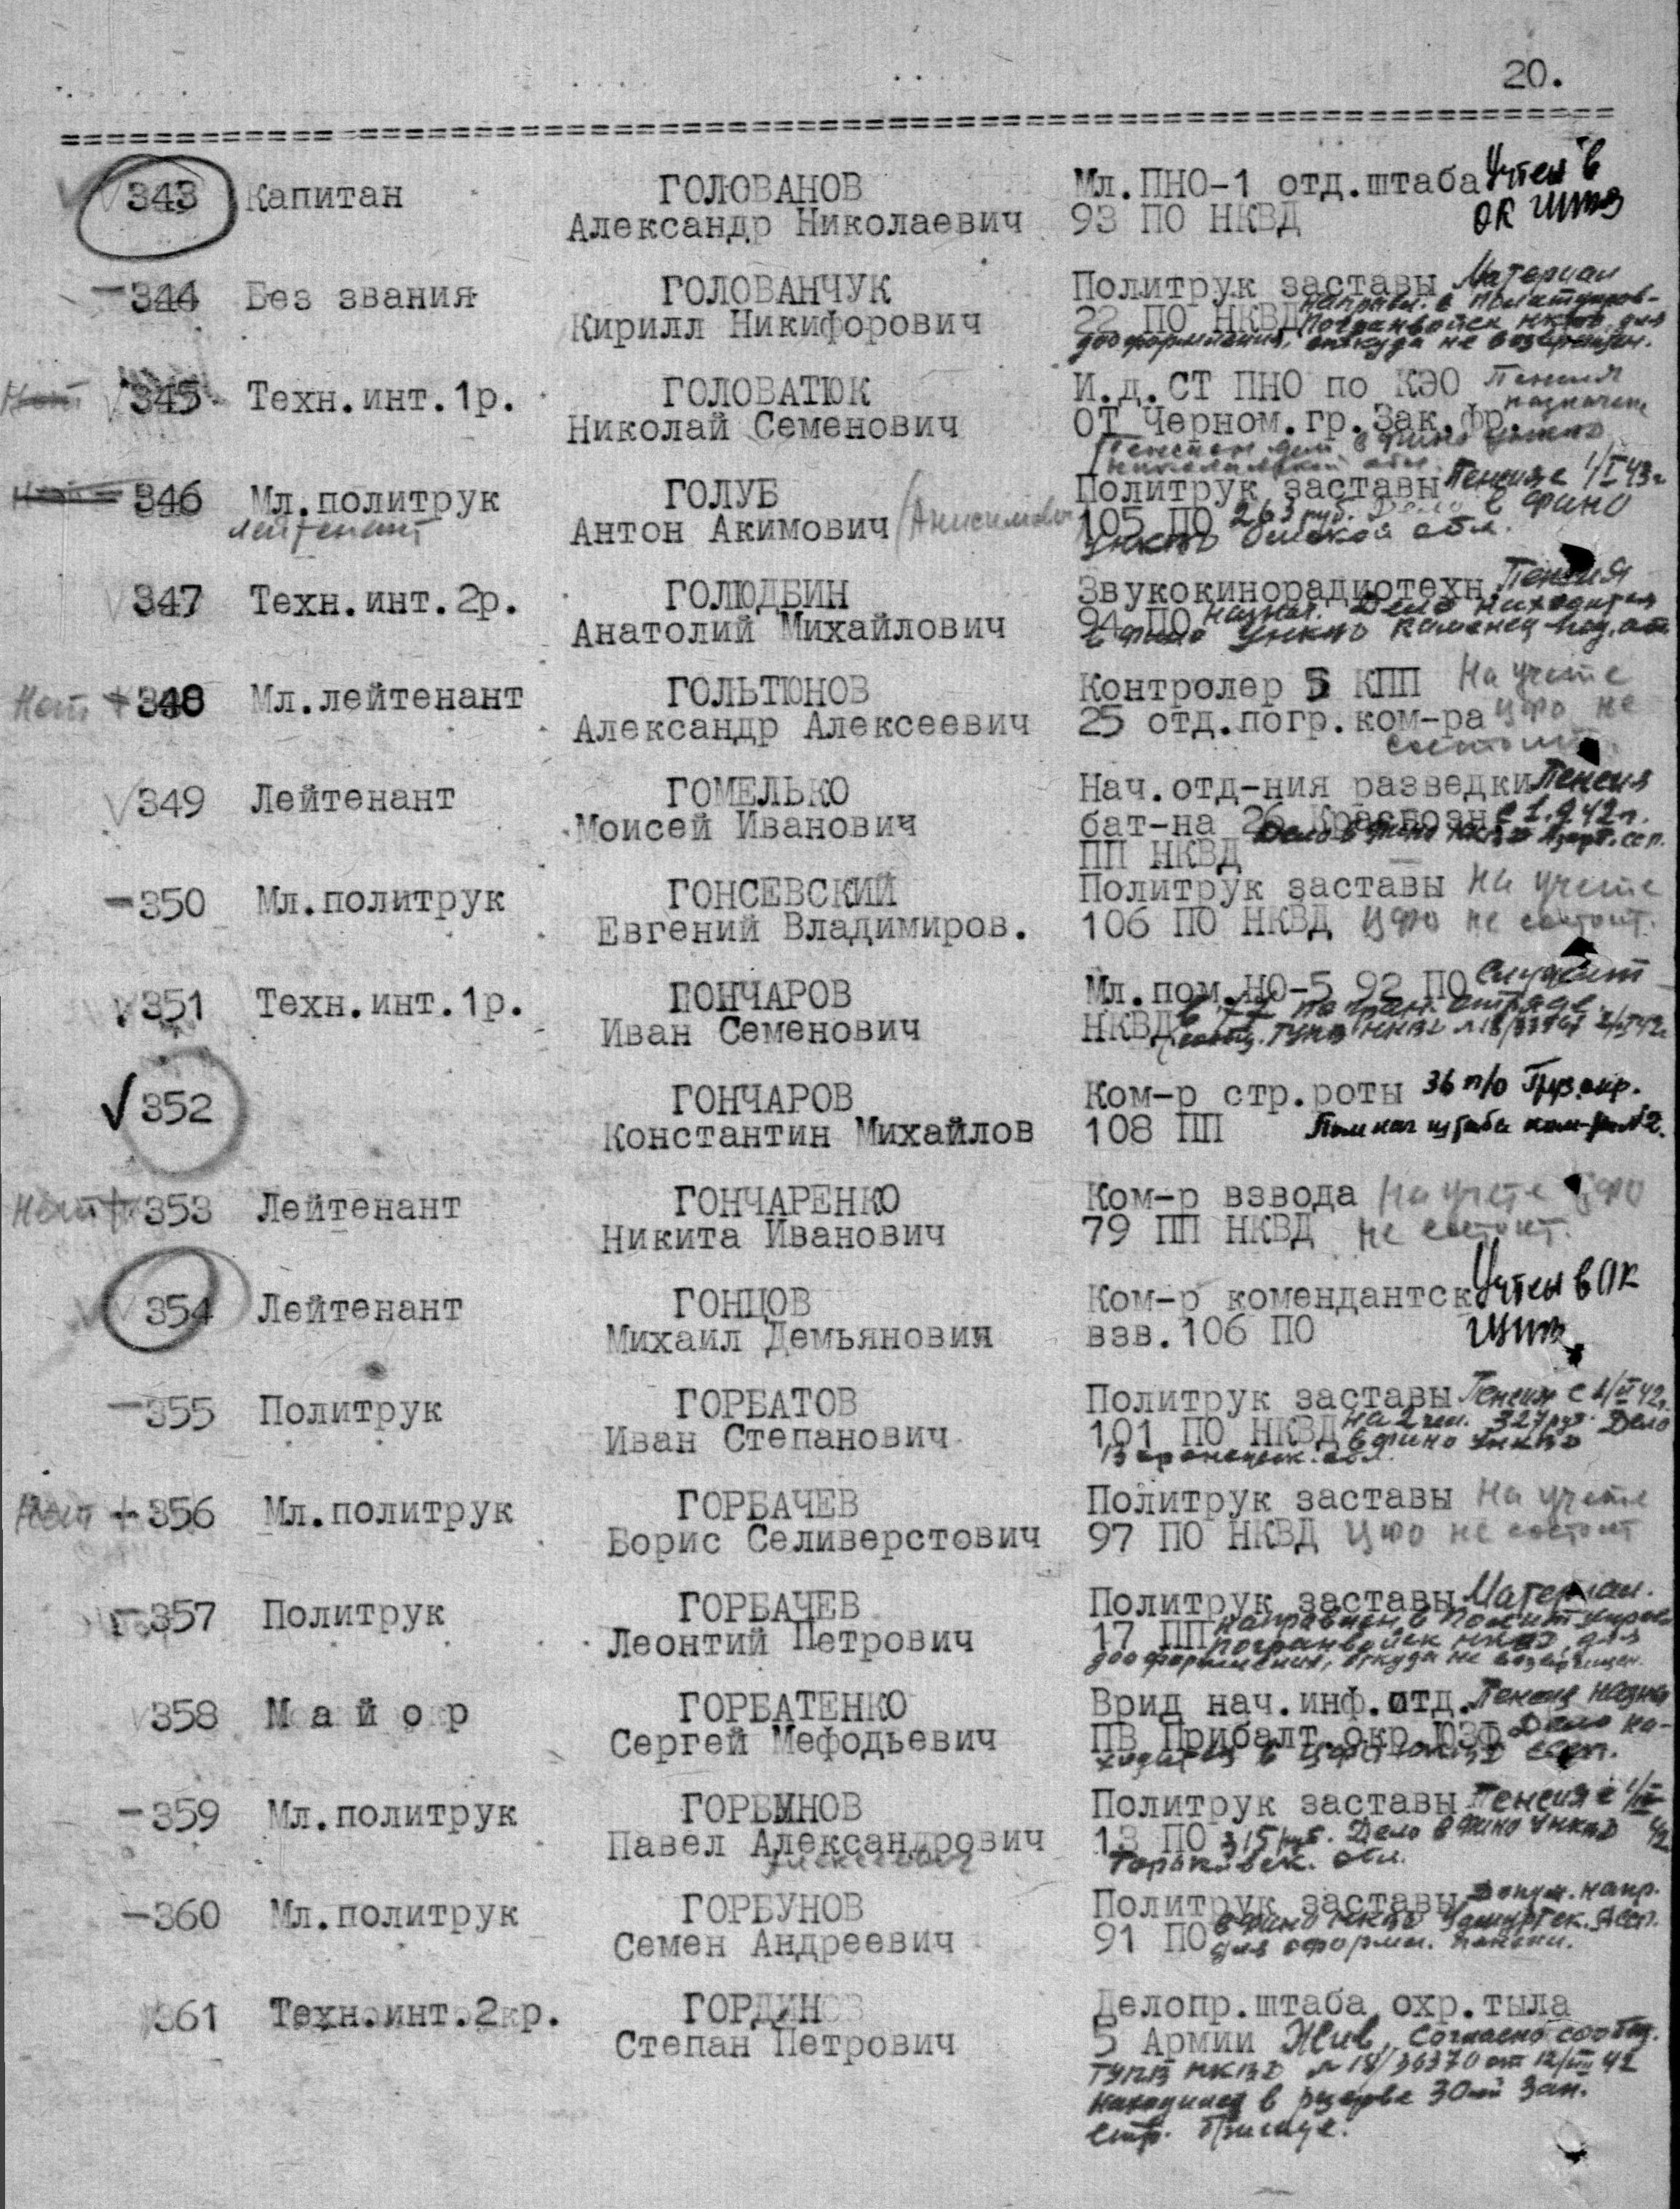 20.
343 Капитан ГОЛОВАНОВ Мл.ПНО-1 отд.штаба Учтен в
Александр Николаевич 93 ПО НКВД ОК
344 Без звания ГОЛОВАНЧУК Политрук заставы Материал
Кирилл Никифорович 22 ПО НКВД направл. в
Погранвойск НКВД для
дооформления, откуда не возвращен.
Нет 345 Техн.инт.1р. ГОЛОВАТЮК И.д.СТ ПНО по КЭО Пенсия
назначена
Николай Семенович ОТ Черном.гр.Зак.фр.
346 Мл.политрук ГОЛУБ Политрук заставы Пенсия с 1/I 43г
лейтенант Антон Акимович (Анисимович 105 ПО 263 руб. Дело в ФИНО
УНКВД Омской обл.
347 Техн.инт.2р. ГОЛЮДБИН Звукокинорадиотехн. Пенсия
Анатолий Михайлович 94 ПО назнач. Дело находится
в ФИНО УНКВД Каменец Под.обл.
Нет + 348 Мл.лейтенант ГОЛЬТЮНОВ Контролер 5 КПП На учете
Александр Алексеевич 25 отд.погр.ком-ра ЦФО не
состоит.
349 Лейтенант ГОМЕЛЬКО Нач.отд-ния разведки Пенсия
Моисей Иванович бат-на 26 Краснозн с 1.9.42г.
Дело в ФИНО НКВД
ПП НКВД
-350 Мл.политрук ГОНСЕВСКИЙ Политрук заставы На учете
Евгений Владимиров. 106 ПО НКВД ЦФО не состоит.
351 Техн.инт.1р. ГОНЧАРОВ Мл.пом.НО-5 92 ПО Служит
Иван Семенович НКВД в 77 погран. отряде
352 ГОНЧАРОВ Ком-р стр.роты 36 п/о Груз.окр.
Константин Михайлов 108 ПП Пом нач штаба ком-ры №2.
Нет + 353 Лейтенант ГОНЧАРЕНКО Ком-р взвода На учете ЦФО
Никита Иванович 79 ПП НКВД не состоит.
354 Лейтенант ГОНЦОВ Ком-р комендантск Учтен в ОК
Михаил Демьянович взв.106 ПО
-355 Политрук ГОРБАТОВ Политрук заставы Пенсия с
Иван Степанович 101 ПО НКВД на 2 чел. 327 руб. Дело
в ФИНО УНКВД
Воронежск. обл.
Нет + 356 Мл.политрук ГОРБАЧЕВ Политрук заставы На учете
Борис Селиверстович 97 ПО НКВД ЦФО не состоит
357 Политрук ГОРБАЧЕВ Политрук заставы Материал.
Леонтий Петрович 17 ПП направлен в
погранвойск НКВД для
дооформления, откуда не возвращен.
358 М а й о р ГОРБАТЕНКО Врид нач.инф.отд. Пенсия назнач
Сергей Мефодьевич ПВ Прибалт.окр.ЮЗФ Дело на-
ходится в ЦФО НКВД СССР.
-359 Мл.политрук ГОРБУНОВ Политрук заставы Пенсия с
Павел Александрович 13 ПО 315 руб. Дело в ФИНО УНКВД
Алексеевич Горьковск. обл.
-360 Мл.политрук ГОРБУНОВ Политрук заставы Докум. напр.
Семен Андреевич 91 ПО в ФИНО НКВД Удмуртск. АССР.
для оформл. пенсии.
361 Техн.инт.2кр. ГОРДИНОВ Делопр.штаба охр.тыла
Степан Петрович 5 Армии Жив, согласно сообщ.
ГУПВ НКВД № 18/36370 от 12/VIII 42
находится в резерве 30ой Зап.
стр. бригаде.